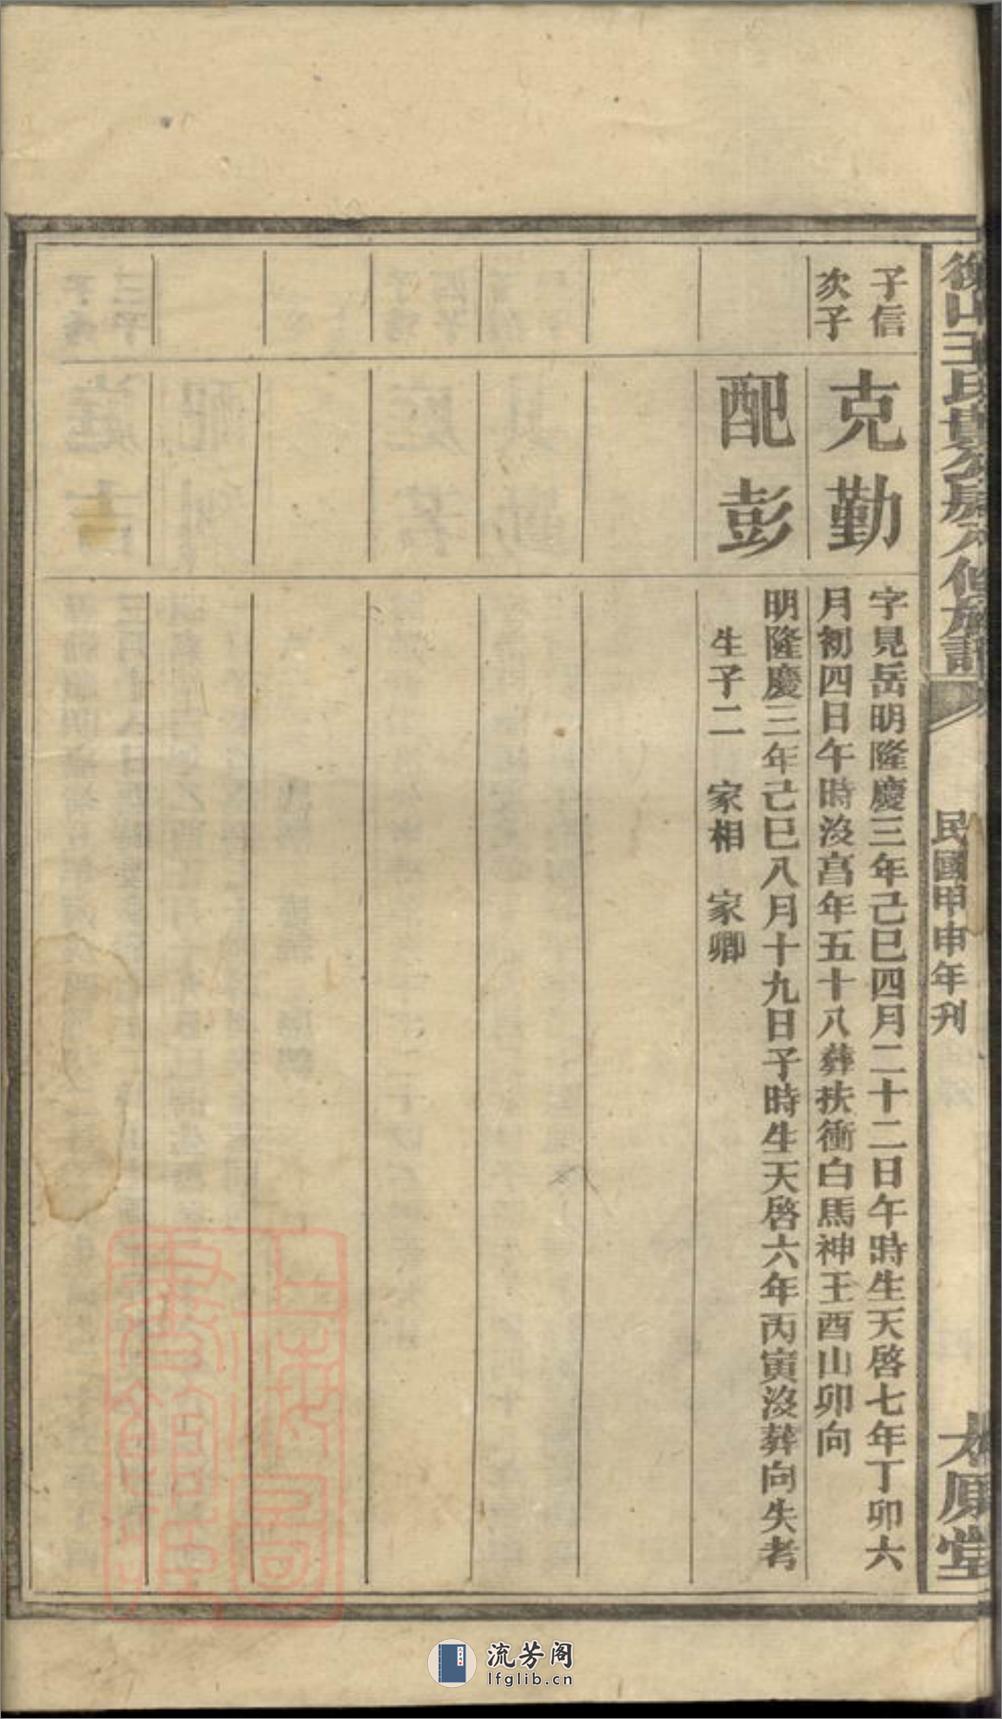 子信
次子
克勤
字見岳明隆慶三年己巳四月二十二日午時生天啓七年丁卯六
月初四日午時沒享年五十八葬扶衝白馬神王酉山卯向
配彭
明隆慶三年己巳八月十九日子時生天啓六年丙寅沒葬向失考
生子二 家相 家卿
民國甲申年刋
太原堂
上海圖書館藏
流芳阁
lfglib.cn